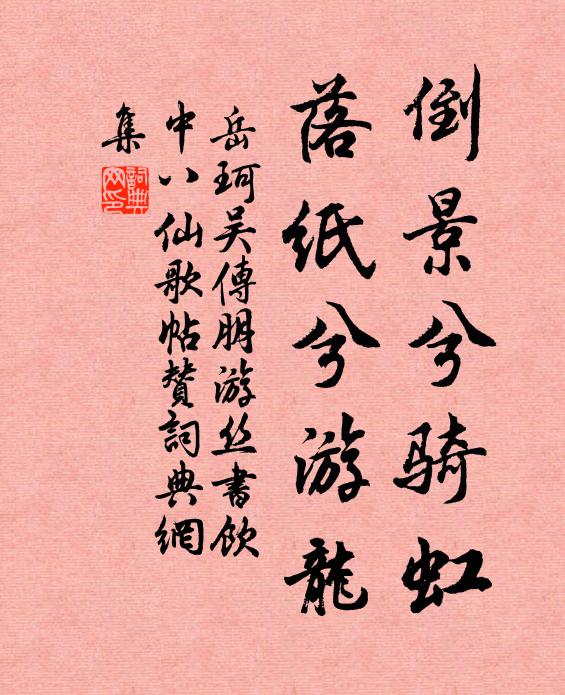 倒景兮骑虹
落纸兮游龍
岳珂吴傅朋游丝書飲
中八仙歌帖賛詞典網
集
詞典
网印